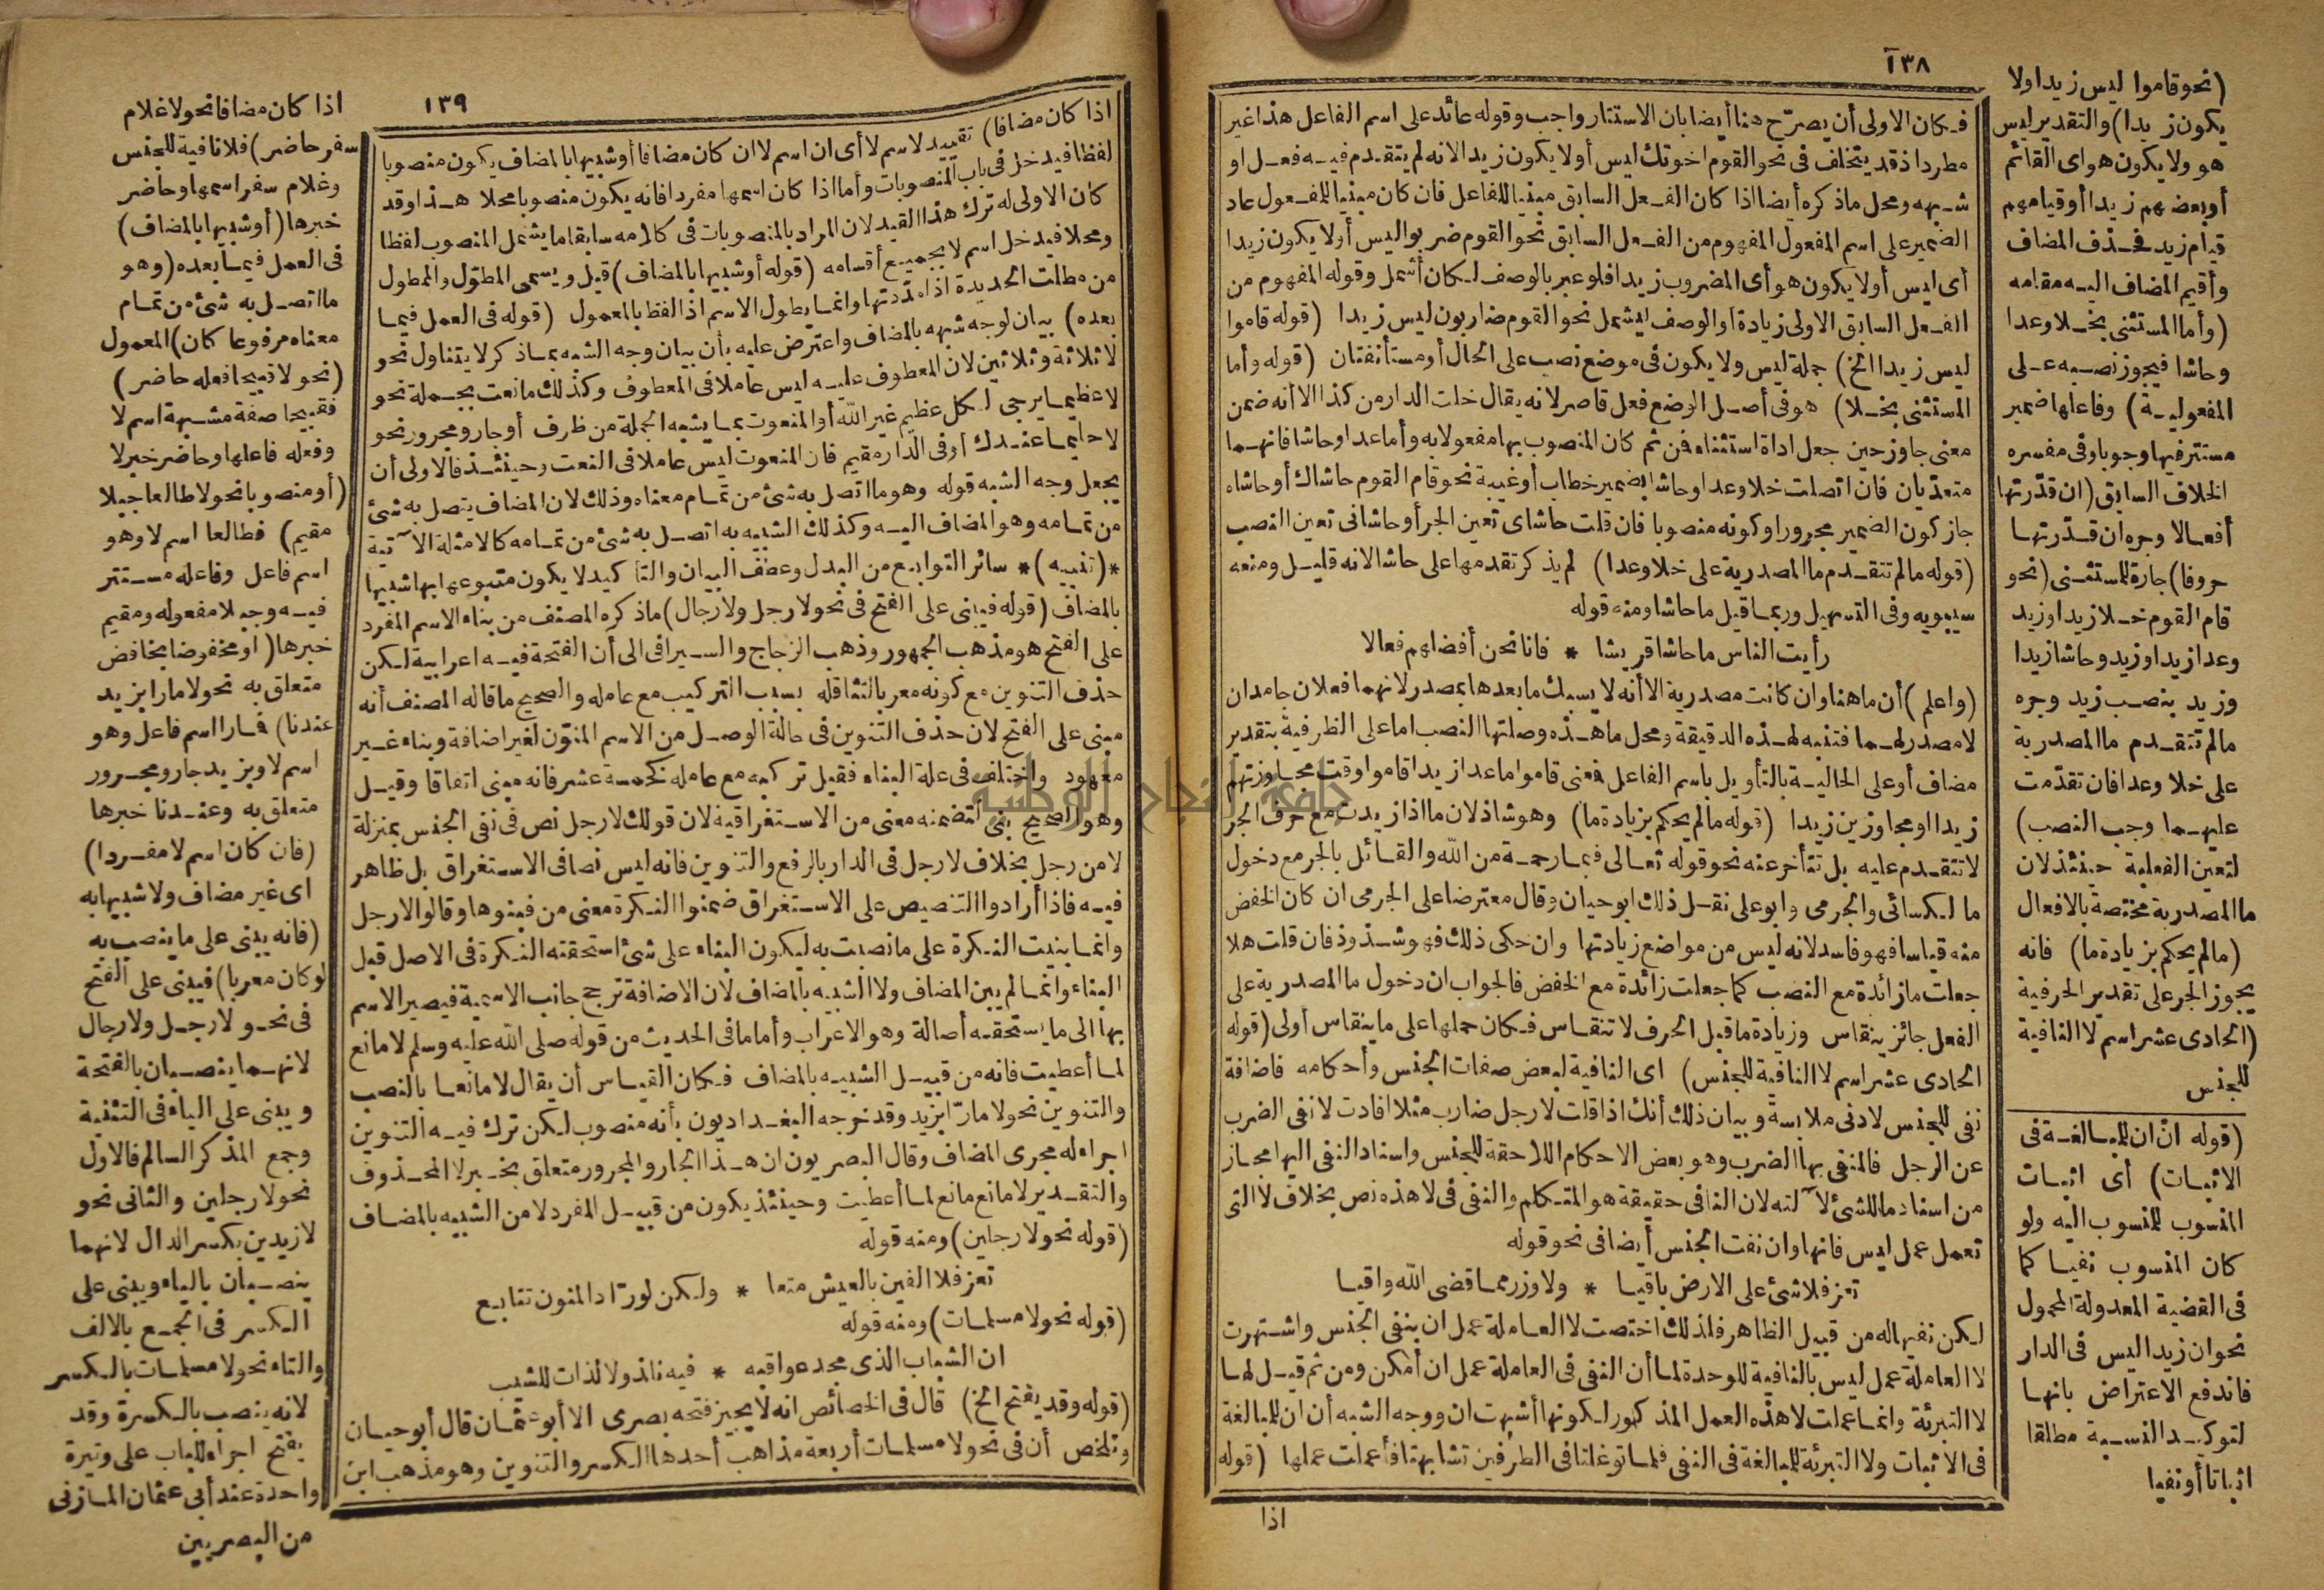 ١٣٨
(نحو قاموا ليس زيدا ولا
يكون زيدا) والتقدير ليس
هو ولا يكون هو اى القائم
أو بعضهم زيدا أو قيامهم
قيام زيد فحذف المضاف
وأقيم المضاف اليه مقامه
(وأما المستثنى بخلا وعدا
وحاشا فيجوز نصبه على
المفعولية) وفاعلها ضمير
مستتر فيها وجوبا وفى مفسره
الخلاف السابق (ان قدّرتها
أفعالا وجره ان قدّرتها
حروفا) جارة للمستثنى (نحو
قام القوم خلا زيدا وزيد
وعدا زيدا وزيد وحاشا زيدا
وزيد بنصب زيد وجره
ما لم تتقدم ما المصدرية
على خلا وعدا فان تقدّمت
عليهما وجب النصب)
لتعين الفعلية حينئذ لان
ما المصدرية مختصة بالافعال
(ما لم يحكم بزيادة ما) فانه
يجوز الجر على تقدير الحرفية
(الحادى عشر اسم لا النافية
للجنس
(قوله ان ان للمبالغة فى
الاثبات) أى اثبات
المنسوب للمنسوب اليه ولو
كان المنسوب نفيا كما
فى القضية المعدولة المحمول
نحو ان زيدا ليس فى الدار
فاندفع الاعتراض بانها
لتوكيد النسبة مطلقا
اثباتا أو نفيا
فكان الاولى أن يصرّح هنا أيضا بان الاستتار واجب وقوله عائد على اسم الفاعل هذا غير
مطرد اذ قد يتخلف فى نحو القوم اخوتك ليس أو لا يكون زيدا لانه لم يتقدم فيه فعل او
شبهه ومحل ما ذكره أيضا اذا كان الفعل السابق مبنيا للفاعل فان كان مبنيا للمفعول عاد
الضمير على اسم المفعول المفهوم من الفعل السابق نحو القوم ضربوا ليس أو لا يكون زيدا
أى ليس أو لا يكون هو أى المضروب زيدا فلو عبر بالوصف لكان أشمل وقوله المفهوم من
الفعل السابق الاولى زيادة أو الوصف ليشمل نحو القوم ضاربون ليس زيدا (قوله قاموا
ليس زيدا الخ) جملة ليس ولا يكون فى موضع نصب على الحال أو مستأنفتان (قوله وأما
المستثنى بخلا) هو فى أصل الوضع فعل قاصر لانه يقال خلت الدار من كذا الا أنه ضمن
معنى جاوز حين جعل اداة استثناء فمن ثم كان المنصوب بها مفعولا به وأما عدا وحاشا فانهما
متعدّيان فان اتصلت خلا وعدا وحاشا بضمير خطاب أو غيبة نحو قام القوم حاشاك أو حاشاه
جاز كون الضمير مجرورا وكونه منصوبا فان قلت حاشاى تعين الجر أو حاشانى تعين النصب
(قوله ما لم تتقدم ما المصدرية على خلا وعدا) لم يذكر تقدمها على حاشا لانه قليل ومنعه
سيبويه وفى التسهيل وربما قيل ما حاشا ومنه قوله
رأيت الناس ما حاشا قريشا * فانا نحن أفضلهم فعالا
(واعلم) أن ما هنا وان كانت مصدرية الا أنه لا يسبك ما بعدها بمصدر لانهما فعلان جامدان
لا مصدر لهما فتنبه لهذه الدقيقة ومحل ما هذه وصلتها النصب اما على الظرفية بتقدير
مضاف أو على الحالية بالتأويل باسم الفاعل فمعنى قاموا ما عدا زيدا قاموا وقت مجاوزتهم
زيدا او مجاوزين زيدا (قوله ما لم يحكم بزيادة ما) وهو شاذ لان ما اذا زيدت مع حرف الجر
لا تتقدم عليه بل تتأخر عنه نحو قوله تعالى فبما رحمة من الله والقائل بالجر مع دخول
ما الكسائى والجرمى وابو على نقل ذلك ابو حيان وقال معترضا على الجرمى ان كان الخفض
منه قياسا فهو فاسد لانه ليس من مواضع زيادتها وان حكى ذلك فهو شذوذ فان قلت هلا
جعلت ما زائدة مع النصب كما جعلت زائدة مع الخفض فالجواب ان دخول ما المصدرية على
الفعل جائز ينقاس وزيادة ما قبل الحرف لا تنقاس فكان حملها على ما ينقاس أولى (قوله
الحادى عشر اسم لا النافية للجنس) اى النافية لبعض صفات الجنس وأحكامه فاضافة
نفى للجنس لادنى ملابسة وبيان ذلك أنك اذا قلت لا رجل ضارب مثلا افادت لا نفى الضرب
عن الرجل فالمنفى بها الضرب وهو بعض الاحكام اللاحقة للجنس واسناد النفى اليها مجاز
من اسناد ما للشئ لآلته لان النافى حقيقة هو المتكلم والنفى فى لا هذه نص بخلاف لا التى
تعمل عمل ليس فانها وان نفت الجنس أيضا فى نحو قوله
تعز فلا شئ على الارض باقيا * ولا وزر مما قضى الله واقيا
ليكن نفيها له من قبيل الظاهر فلذلك اختصت لا العاملة عمل ان بنفى الجنس واشتهرت
لا العاملة عمل ليس بالنافية للوحدة لما أن النفى فى العاملة عمل ان أمكن ومن ثم قيل لها
لا التبرئة وانما عملت لا هذه العمل المذكور لكونها أشبهت ان ووجه الشبه أن ان للمبالغة
فى الاثبات ولا التبرئة للمبالغة فى النفى فلما توغلتا فى الطرفين تشابهتا فأعملت عملها (قوله
اذا
١٣٩
اذا كان مضافا) تقييد لاسم لا أى ان اسم لا ان كان مضافا أو شبيها بالمضاف يكون منصوبا
لفظا فيدخل فى باب المنصوبات وأما اذا كان اسمها مفردا فانه يكون منصوبا محلا هذا وقد
كان الاولى له ترك هذا القيد لان المراد بالمنصوبات فى كلامه سابقا ما يشمل المنصوب لفظا
ومحلا فيدخل اسم لا بجميع أقسامه (قوله أو شبيها بالمضاف) قيل ويسمى المطوّل والممطول
من مطلت الحديدة اذا مددتها وانما يطول الاسم اذ الفظ بالمعمول (قوله فى العمل فيما
بعده) بيان لوجه شبهه بالمضاف واعترض عليه بأن بيان وجه الشبه بما ذكر لا يتناول نحو
لا ثلاثة وثلاثين لان المعطوف عليه ليس عاملا فى المعطوف وكذلك ما نعت بجملة نحو
لا عظيما يرجى لكل عظيم غير الله أو المنعوت بما يشبه الجملة من ظرف أو جار ومجرور نحو
لا حليما عندك أو فى الدار مقيم فان المنعوت ليس عاملا فى النعت وحينئذ فالاولى أن
يجعل وجه الشبه قوله وهو ما اتصل به شئ من تمام معناه وذلك لان المضاف يتصل به شئ
من تمامه وهو المضاف اليه وكذلك الشبيه به اتصل به شئ من تمامه كالامثلة الآتية
*(تنبيه)* سائر التوابع من البدل وعطف البيان والتأكيد لا يكون متبوعها بها شبيها
بالمضاف (قوله فيبنى على الفتح فى نحو لا رجل ولا رجال) ما ذكره المصنف من بناء الاسم المفرد
على الفتح هو مذهب الجمهور وذهب الزجاج والسيرافى الى أن الفتحة فيه اعرابية لكن
حذف التنوين مع كونه معربا لتثاقله بسبب التركيب مع عامله والصحيح ما قاله المصنف أنه
مبنى على الفتح لان حذف التنوين فى حالة الوصل من الاسم المنوّن لغير اضافة وبناء غير
معهود واختلف فى علة البناء فقيل تركبه مع عامله كخمسة عشر فانه مبنى اتفاقا وقيل
وهو الصحيح بنى لتضمنه معنى من الاستغراقية لان قولك لا رجل نص فى نفى الجنس بمنزلة
لا من رجل بخلاف لا رجل فى الدار بالرفع والتنوين فانه ليس نصا فى الاستغراق بل ظاهر
فيه فاذا أرادوا التنصيص على الاستغراق ضمنوا النكرة معنى من فبنوها وقالوا لا رجل
وانما بنيت النكرة على ما نصبت به ليكون البناء على شئ استحقته النكرة فى الاصل قبل
البناء وانما لم يبن المضاف ولا الشبيه بالمضاف لان الاضافة ترجح جانب الاسمية فيصير الاسم
بها الى ما يستحقه أصالة وهو الاعراب وأما ما فى الحديث من قوله صلى الله عليه وسلم لا مانع
لما أعطيت فانه من قبيل الشبيه بالمضاف فكان القياس أن يقال لا مانعا بالنصب
والتنوين نحو لا مارّا بزيد وقد خرجه البغداديون بأنه منصوب لكن ترك فيه التنوين
اجراء له مجرى المضاف وقال البصريون ان هذا الجار والمجرور متعلق بخبر لا المحذوف
والتقدير لا مانع مانع لما أعطيت وحينئذ يكون من قبيل المفرد لا من الشبيه بالمضاف
(قوله نحو لا رجلين) ومنه قوله
تعز فلا الفين بالعيش متعا * ولكن لورّاد المنون تتابع
(قوله نحو لا مسلمات) ومنه قوله
ان الشباب الذى مجد عواقبه * فيه نلذ ولا لذات للشيب
(قوله وقد يفتح الخ) قال فى الخصائص انه لا يجيز فتحه بصرى الا أبو عثمان قال أبو حيان
وتلخص أن فى نحو لا مسلمات أربعة مذاهب أحدها الكسر والتنوين وهو مذهب ابن
اذا كان مضافا نحو لا غلام
سفر حاضر) فلا نافية للجنس
وغلام سفر اسمها وحاضر
خبرها (أو شبيها بالمضاف)
فى العمل فيما بعده (وهو
ما اتصل به شئ من تمام
معناه مرفوعا كان) المعمول
(نحو لا قبيحا فعله حاضر)
فقبيحا صفة مشبهة اسم لا
وفعله فاعلها وحاضر خبر لا
(أو منصوبا نحو لا طالعا جبلا
مقيم) فطالعا اسم لا وهو
اسم فاعل وفاعله مستتر
فيه وجبلا مفعوله ومقيم
خبرها (او مخفوضا بخافض
متعلق به نحو لا مارا بزيد
عندنا) فمارا اسم فاعل وهو
اسم لا وبزيد جار ومجرور
متعلق به وعندنا خبرها
(فان كان اسم لا مفردا)
اى غير مضاف ولا شبيها به
(فانه يبنى على ما ينصب به
لو كان معربا) فيبنى على الفتح
فى نحو لا رجل ولا رجال
لانهما ينصبان بالفتحة
ويبنى على الياء فى التثنية
وجمع المذكر السالم فالاول
نحو لا رجلين والثانى نحو
لا زيدين بكسر الدال لانهما
ينصبان بالياء ويبنى على
الكسر فى الجمع بالالف
والتاء نحو لا مسلمات بالكسر
لانه ينصب بالكسرة وقد
يفتح اجراء للباب على وتيرة
واحدة عند أبى عثمان المازنى
من البصريين
جامعة النجاح الوطنية